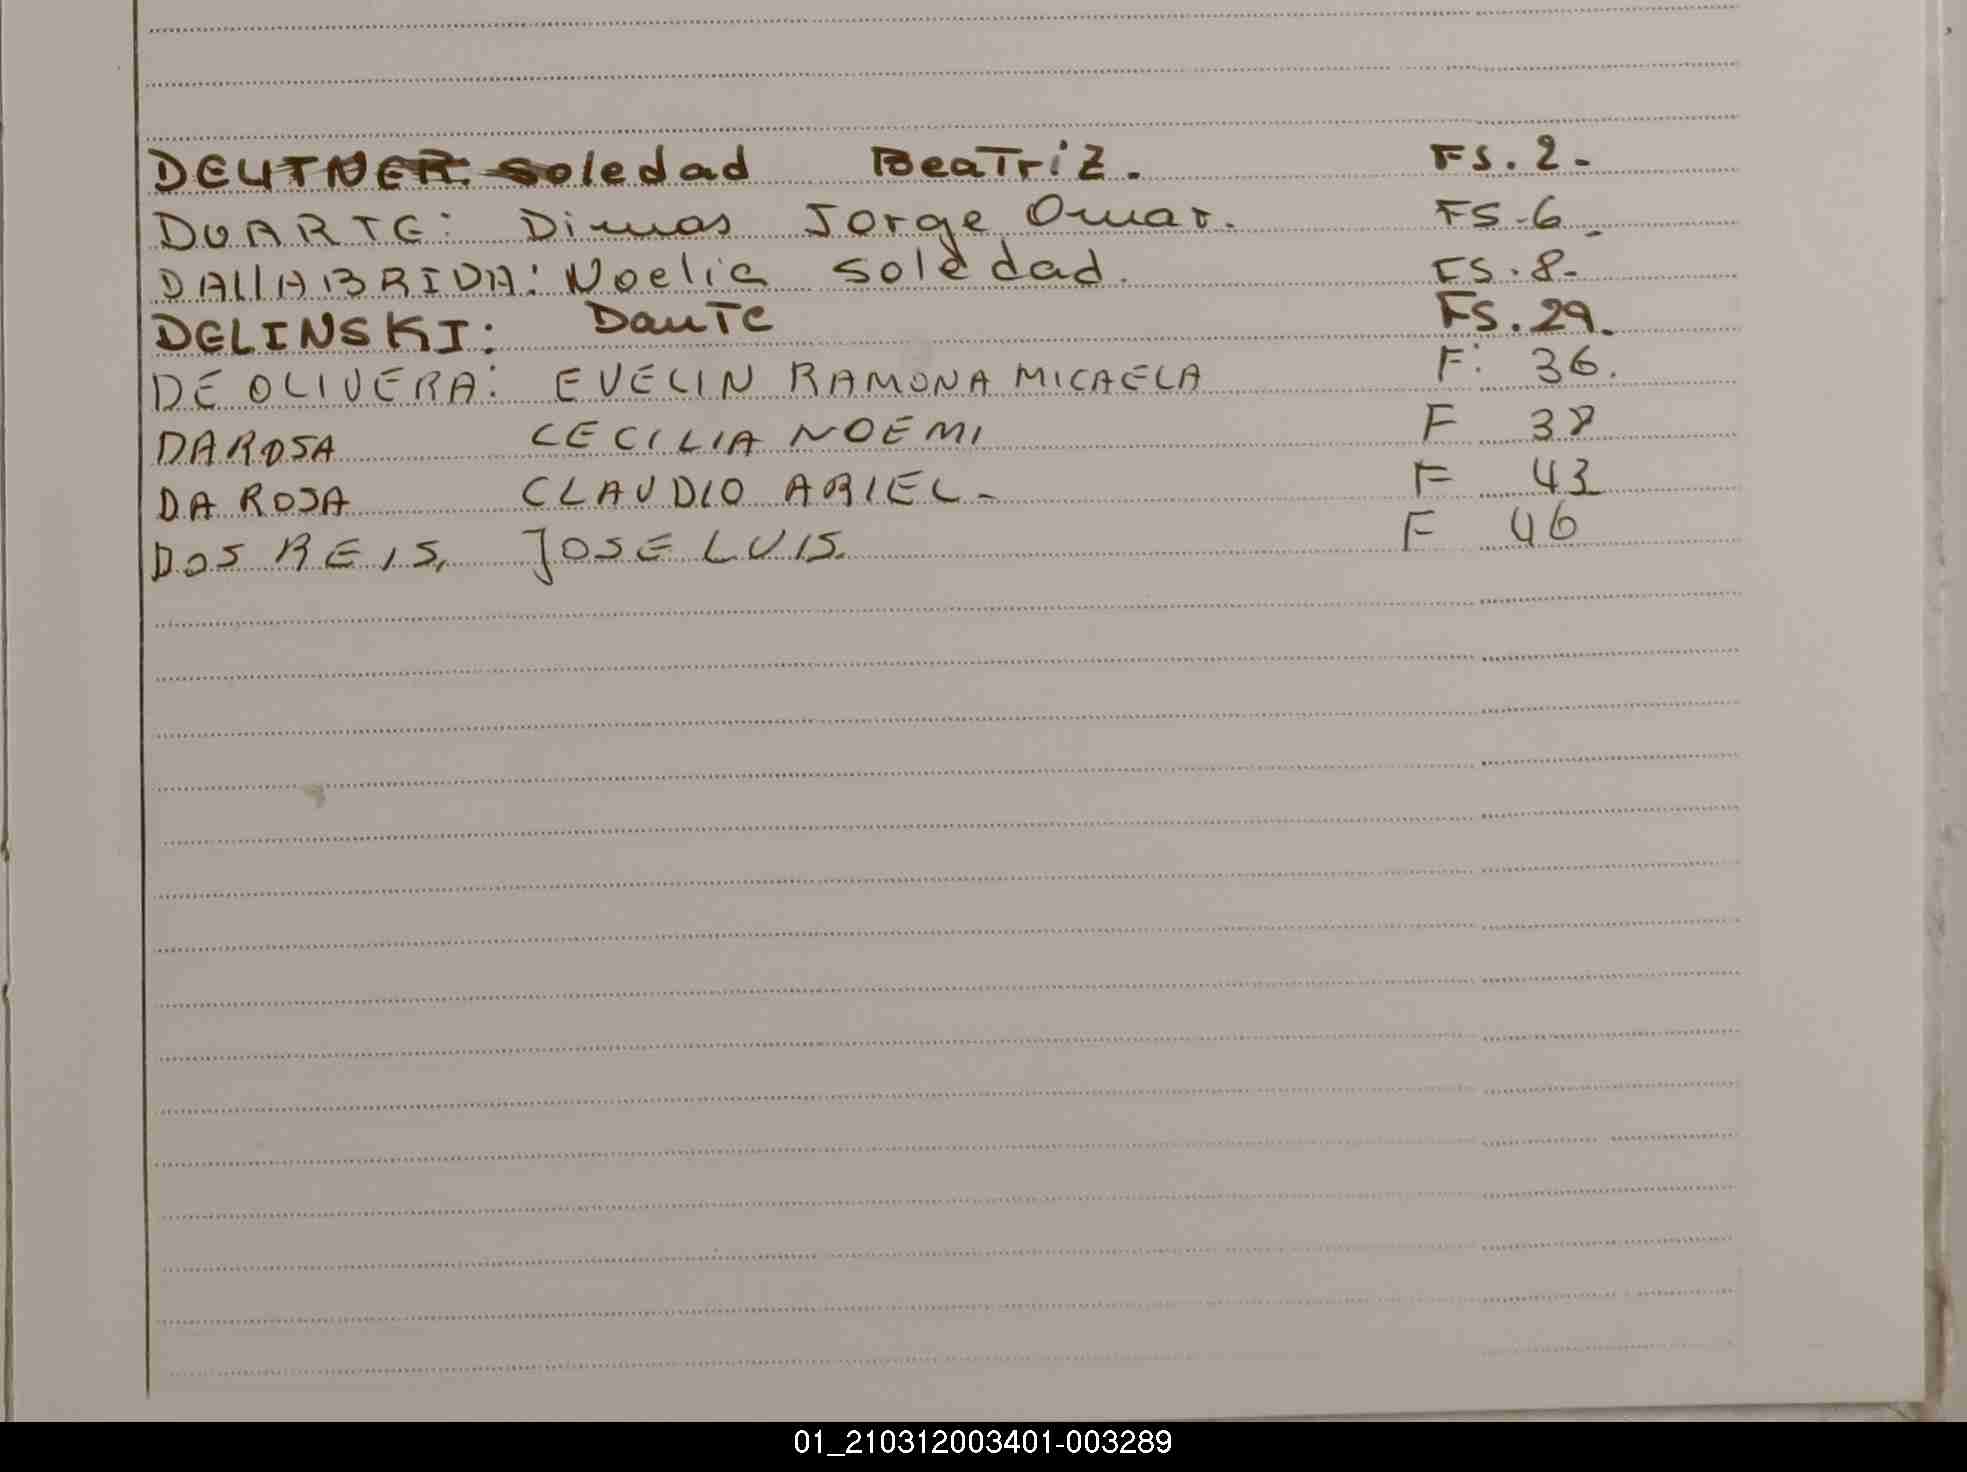 DEUTNER. Soledad Beatriz. FS. 2-
DUARTE: Dimas Jorge Omar. FS-6-
DAllABRIDA: Noelia Soledad. FS. 8-
DELINSKI: Dante FS. 29.
DE OLIVERA: EVELIN RAMONA MICAELA F: 36.
DAROSA CECILIA NOEMI F 38
DA ROSA CLAUDIO ARIEL- F 43
DOS REIS, JOSE LUIS. F 46
01_210312003401-003289